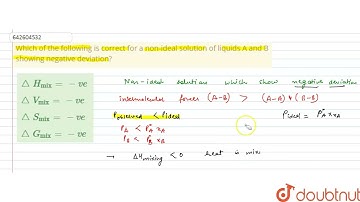 642604532
Which of the following is correct for a non-ideal solution of liquids A and B
showing negative deviation?
△ Hmix = − ve
△ Vmix = − ve
△ Smix = − ve
△ Gmix = − ve
Non-ideal solution which show negative deviation
intermolecular forces (A-B) > (A-A) & (B-B)
Pobserved < Pideal
PA < P°A xA
PB < P°B xB
Pideal = P°A xA
→ ΔHmixing < 0 heat is mix
doubtnut